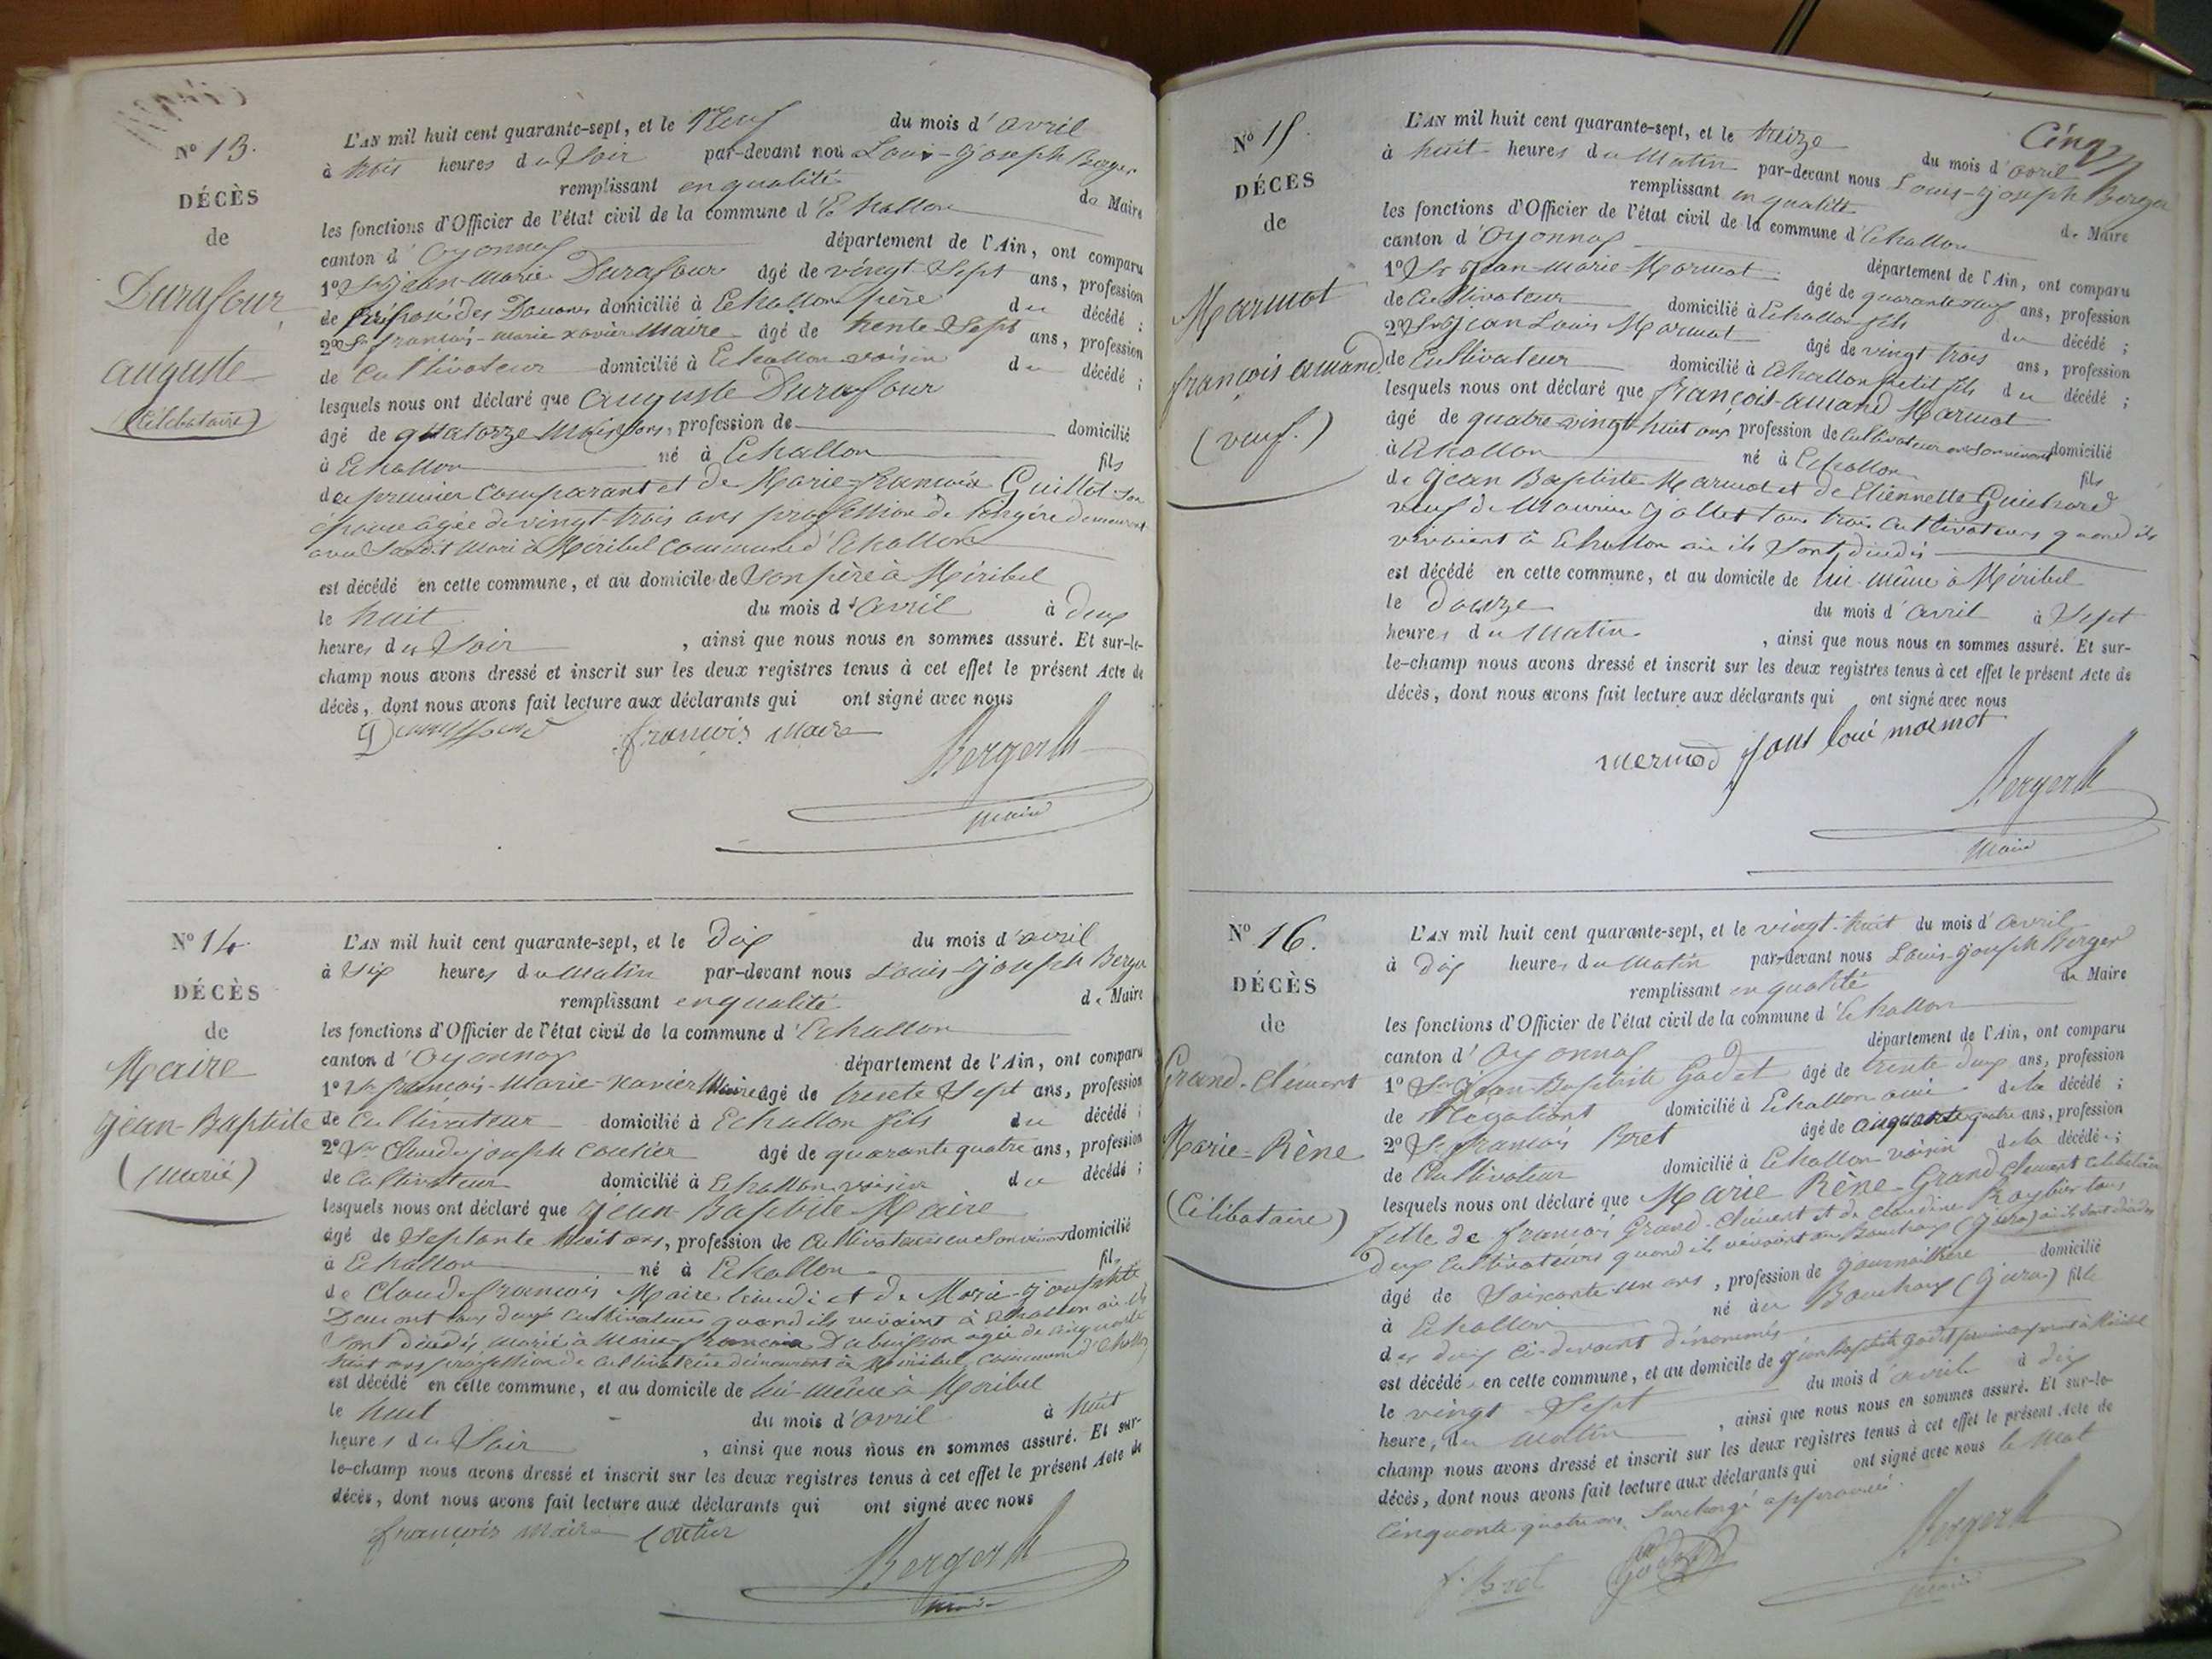 N° 13.
DÉCÈS
de
Durafour
auguste
(Célibataire)
L'AN mil huit cent quarante-sept, et le Neuf du mois d'avril
à trois heures du Soir par-devant nou Louis-Joseph Berger
remplissant en qualité de Maire
les fonctions d'Officier de l'état civil de la commune d'Echallon
canton d'Oyonnax département de l'Ain, ont comparu
1° Sr Jean-Marie Durafour âgé de vingt-Sept ans, profession
de préposé des Douanes domicilié à Echallon père du décédé ;
2° Sr françois-marie xavier Maire âgé de trente Sept ans, profession
de Cultivateur domicilié à Echallon voisin du décédé ;
lesquels nous ont déclaré que auguste Durafour
âgé de quatorze Mois ans, profession de domicilié
à Echallon né à Echallon fils
du premier Comparant et de Marie-françoise Guillot son
épouse âgée de vingt-trois ans profession de lingère demeurant
avec Sondit Mari à Miribel commune d'Echallon
est décédé en cette commune, et au domicile de Son père à Miribel
le huit du mois d'avril à deux
heures du Soir , ainsi que nous nous en sommes assuré. Et sur-le-
champ nous avons dressé et inscrit sur les deux registres tenus à cet effet le présent Acte de
décès, dont nous avons fait lecture aux déclarants qui ont signé avec nous
françois Maire
Berger
maire
N° 14.
DÉCÈS
de
Maire
Jean-Baptiste
(Marié)
L'AN mil huit cent quarante-sept, et le Dix du mois d'avril
à Six heures du Matin par-devant nous Louis-Joseph Berger
remplissant en qualité de Maire
les fonctions d'Officier de l'état civil de la commune d'Echallon
canton d'Oyonnax département de l'Ain, ont comparu
1° Sr françois-Marie-xavier Maire âgé de trente Sept ans, profession
de Cultivateur domicilié à Echallon fils du décédé ;
2° Sr Claude joseph Coutier âgé de quarante quatre ans, profession
de Cultivateur domicilié à Echallon voisin du décédé ;
lesquels nous ont déclaré que Jean-Baptiste Maire
âgé de Septante huit ans, profession de Cultivateur en Son vivant domicilié
à Echallon né à Echallon fils
de Claude françois Maire et de Marie-josephte
tous deux Cultivateurs quand ils vivaient à Echallon où ils
Sont décédés, marié à Marie-françoise Dubuisson âgée de cinquante
huit ans profession de Cultivatrice demeurant à Miribel, Commune d'Echallon
est décédé en cette commune, et au domicile de lui-même à Miribel
le huit du mois d'avril à huit
heures du Soir , ainsi que nous nous en sommes assuré. Et sur-
le-champ nous avons dressé et inscrit sur les deux registres tenus à cet effet le présent Acte de
décès, dont nous avons fait lecture aux déclarants qui ont signé avec nous
françois Maire Coutier
Berger
maire
Cinq
N° 15.
DÉCÈS
de
Marmot
françois amand
(veuf.)
L'AN mil huit cent quarante-sept, et le treize du mois d'avril
à huit heures du Matin par-devant nous Louis-Joseph Berger
remplissant en qualité de Maire
les fonctions d'Officier de l'état civil de la commune d'Echallon
canton d'Oyonnax département de l'Ain, ont comparu
1° Sr Jean-Marie-Marmot âgé de quarante neuf ans, profession
de Cultivateur domicilié à Echallon fils du décédé ;
2° Sr Jean Louis Marmot âgé de vingt trois ans, profession
de Cultivateur domicilié à Echallon petit fils du décédé ;
lesquels nous ont déclaré que françois-amand Marmot
âgé de quatre-vingt huit ans profession de Cultivateur en Son vivant domicilié
à Echallon né à Echallon fils
de Jean Baptiste Marmot et de Etiennette Guichard
veuf de Maurice Gallet tous trois Cultivateurs quand ils
vivaient à Echallon où ils Sont décédés
est décédé en cette commune, et au domicile de lui-même à Miribel
le Douze du mois d'avril à Sept
heures du Matin , ainsi que nous nous en sommes assuré. Et sur-
le-champ nous avons dressé et inscrit sur les deux registres tenus à cet effet le présent Acte de
décès, dont nous avons fait lecture aux déclarants qui ont signé avec nous
mermod jous loui mormot
Berger
Maire
N° 16.
DÉCÈS
de
Grand-Clément
Marie-Rène
(Célibataire)
L'AN mil huit cent quarante-sept, et le vingt-huit du mois d'avril
à dix heures du Matin par-devant nous Louis-Joseph Berger
remplissant en qualité de Maire
les fonctions d'Officier de l'état civil de la commune d'Echallon
canton d'Oyonnax département de l'Ain, ont comparu
1° Sr Jean-Baptiste Godet âgé de trente deux ans, profession
de Négociant domicilié à Echallon ami de la décédé ;
2° Sr françois Bret âgé de cinquante quatre ans, profession
de Cultivateur domicilié à Echallon voisin de la décédée ;
lesquels nous ont déclaré que Marie Rène-Grand Clément célibataire
fille de françois Grand-Clément et de Claudine tous
deux Cultivateurs quand ils vivaient au Bouchoux (Jura) où ils Sont décédés
âgé de Soixante-un ans , profession de journalière domicilié
à Echallon né au Bouchoux (Jura) fille
des deux ci-devant dénommés
est décédé en cette commune, et au domicile de Jean Baptiste Godet à Miribel
le vingt Sept du mois d'avril à dix
heures du Matin , ainsi que nous nous en sommes assuré. Et sur-le-
champ nous avons dressé et inscrit sur les deux registres tenus à cet effet le présent Acte de
décès, dont nous avons fait lecture aux déclarants qui ont signé avec nous le mot
Cinquante quatre Surchargé approuvé.
f. Bret Godet
Berger
maire